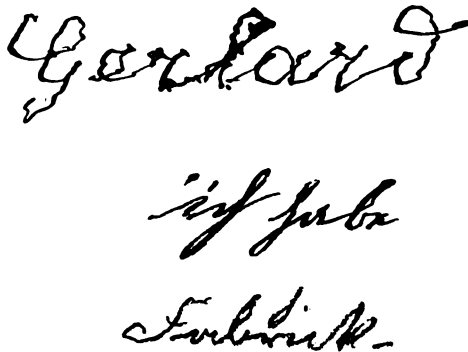 Gerhard
ich habe
Fabrik-